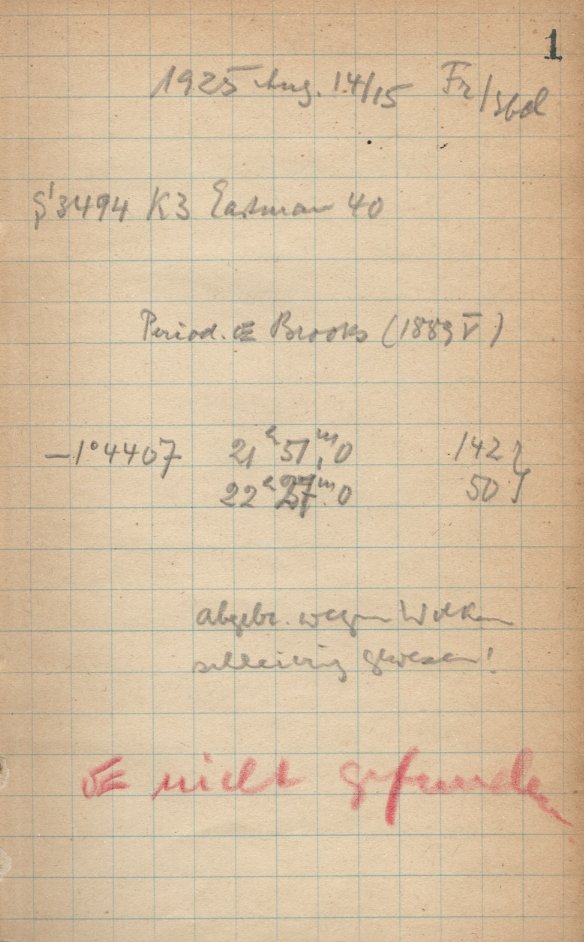 1
1925 Aug. 14/15 Fr/Sbd
3494 K3 Eastman 40
Period. ☄ Brooks (1889 V)
−1°4407 21ʰ51ᵐ,0 142
22ʰ27ᵐ.0 50
abgebr. wegen Wolken
schleierig gewesen!
☄ nicht gefunden